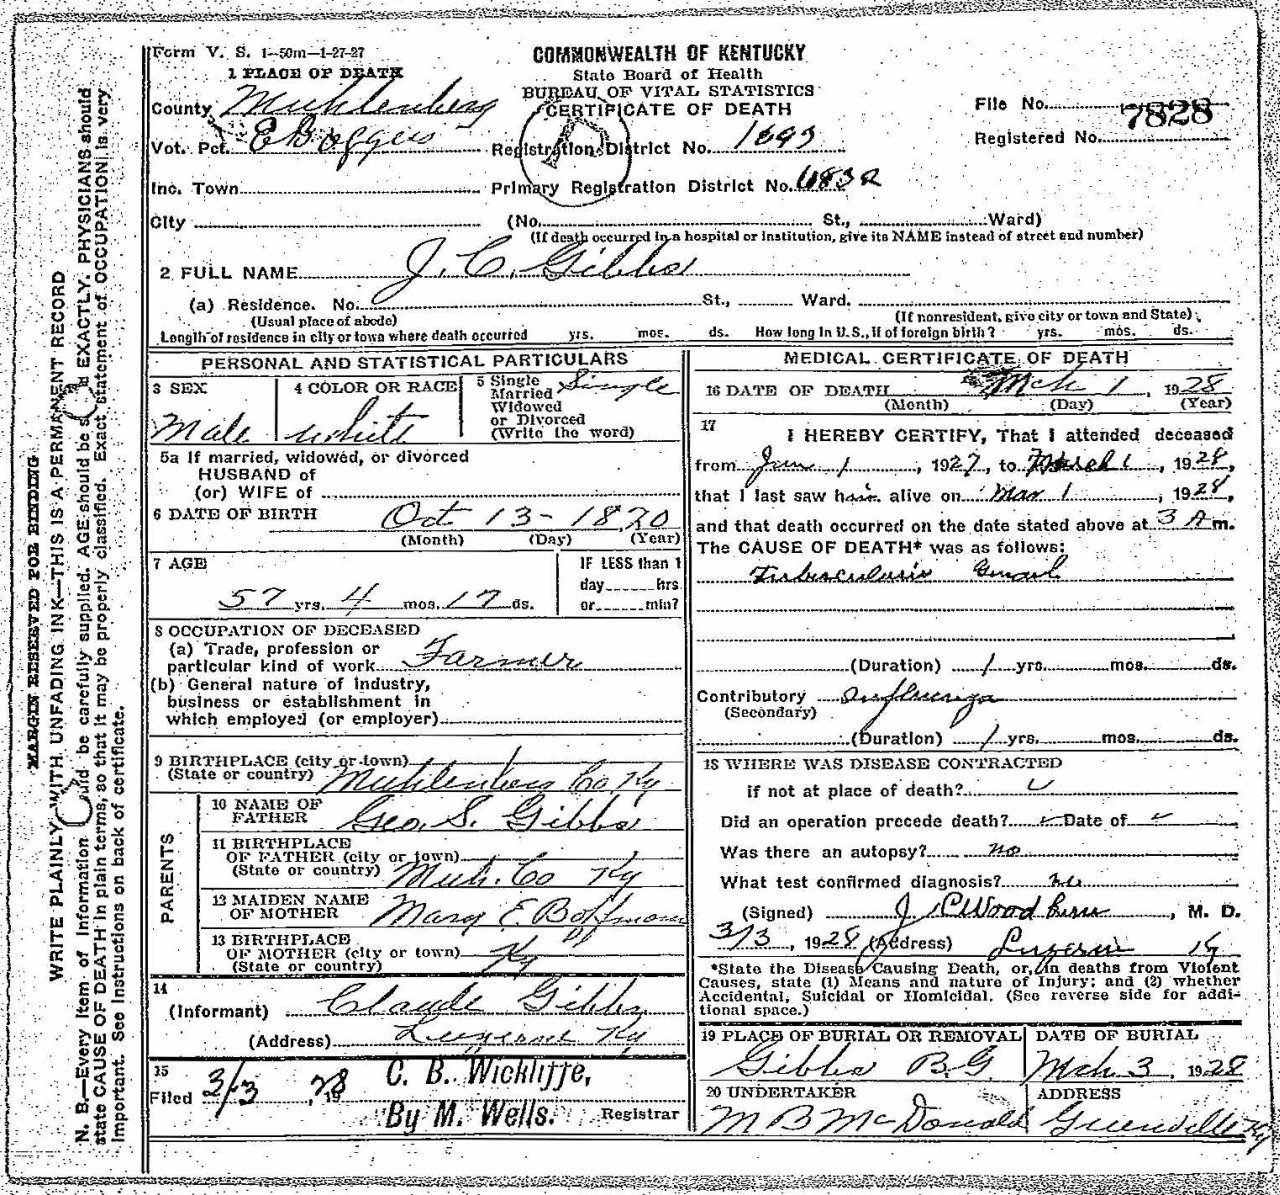 Form V. S. 1-50m-1-27-27
COMMONWEALTH OF KENTUCKY
State Board of Health
BUREAU OF VITAL STATISTICS
CERTIFICATE OF DEATH
1 PLACE OF DEATH
County Muhlenberg
File No. 7828
Registered No.
Vot. Pct. E Boggess
Registration District No. 1093
Inc. Town
Primary Registration District No. 6832
City (No. St., Ward)
(If death occurred in a hospital or institution, give its NAME instead of street and number)
2 FULL NAME J. C. Gibbs
(a) Residence. No. St., Ward.
(Usual place of abode) (If nonresident, give city or town and State)
Length of residence in city or town where death occurred yrs. mos. ds. How long in U.S., if of foreign birth? yrs. mos. ds.
PERSONAL AND STATISTICAL PARTICULARS
3 SEX Male
4 COLOR OR RACE white
5 Single Married Widowed or Divorced (Write the word) Single
5a If married, widowed, or divorced
HUSBAND of
(or) WIFE of
6 DATE OF BIRTH Oct 13-1870
(Month) (Day) (Year)
7 AGE
57 yrs. 4 mos. 17 ds.
IF LESS than 1
day hrs
or min?
8 OCCUPATION OF DECEASED
(a) Trade, profession or
particular kind of work Farmer
(b) General nature of industry,
business or establishment in
which employed (or employer)
9 BIRTHPLACE (city or town)
(State or country) Muhlenberg Co Ky
PARENTS
10 NAME OF
FATHER Geo. S. Gibbs
11 BIRTHPLACE
OF FATHER (city or town)
(State or country) Muh. Co Ky
12 MAIDEN NAME
OF MOTHER Mary E Boffman
13 BIRTHPLACE
OF MOTHER (city or town)
(State or country) Ky
14
(Informant) Claude Gibbs
(Address) Luzerne Ky
15
Filed 3/3, 1928 C. B. Wickliffe,
By M. Wells. Registrar
MEDICAL CERTIFICATE OF DEATH
16 DATE OF DEATH Mch 1, 1928
(Month) (Day) (Year)
17
I HEREBY CERTIFY, That I attended deceased
from Jun 1, 1927, to March 1, 1928,
that I last saw him alive on Mar 1, 1928,
and that death occurred on the date stated above at 3 A m.
The CAUSE OF DEATH* was as follows:
Tuberculosis
(Duration) 1 yrs. mos. ds.
Contributory Influenza
(Secondary)
(Duration) 1 yrs. mos. ds.
18 WHERE WAS DISEASE CONTRACTED
if not at place of death?
Did an operation precede death? Date of
Was there an autopsy? no
What test confirmed diagnosis? no
(Signed) J C Woodburn, M. D.
3/3, 1928 (Address) Luzerne Ky
*State the Disease Causing Death, or, in deaths from Violent
Causes, state (1) Means and nature of Injury; and (2) whether
Accidental, Suicidal or Homicidal. (See reverse side for addi-
tional space.)
19 PLACE OF BURIAL OR REMOVAL
Gibbs B.G.
DATE OF BURIAL
Mch 3, 1928
20 UNDERTAKER
M B McDonald
ADDRESS
Greenville Ky
MARGIN RESERVED FOR BINDING
WRITE PLAINLY, WITH UNFADING INK—THIS IS A PERMANENT RECORD
N. B.—Every item of information should be carefully supplied. AGE should be stated EXACTLY. PHYSICIANS should
state CAUSE OF DEATH in plain terms, so that it may be properly classified. Exact statement of OCCUPATION is very
important. See instructions on back of certificate.